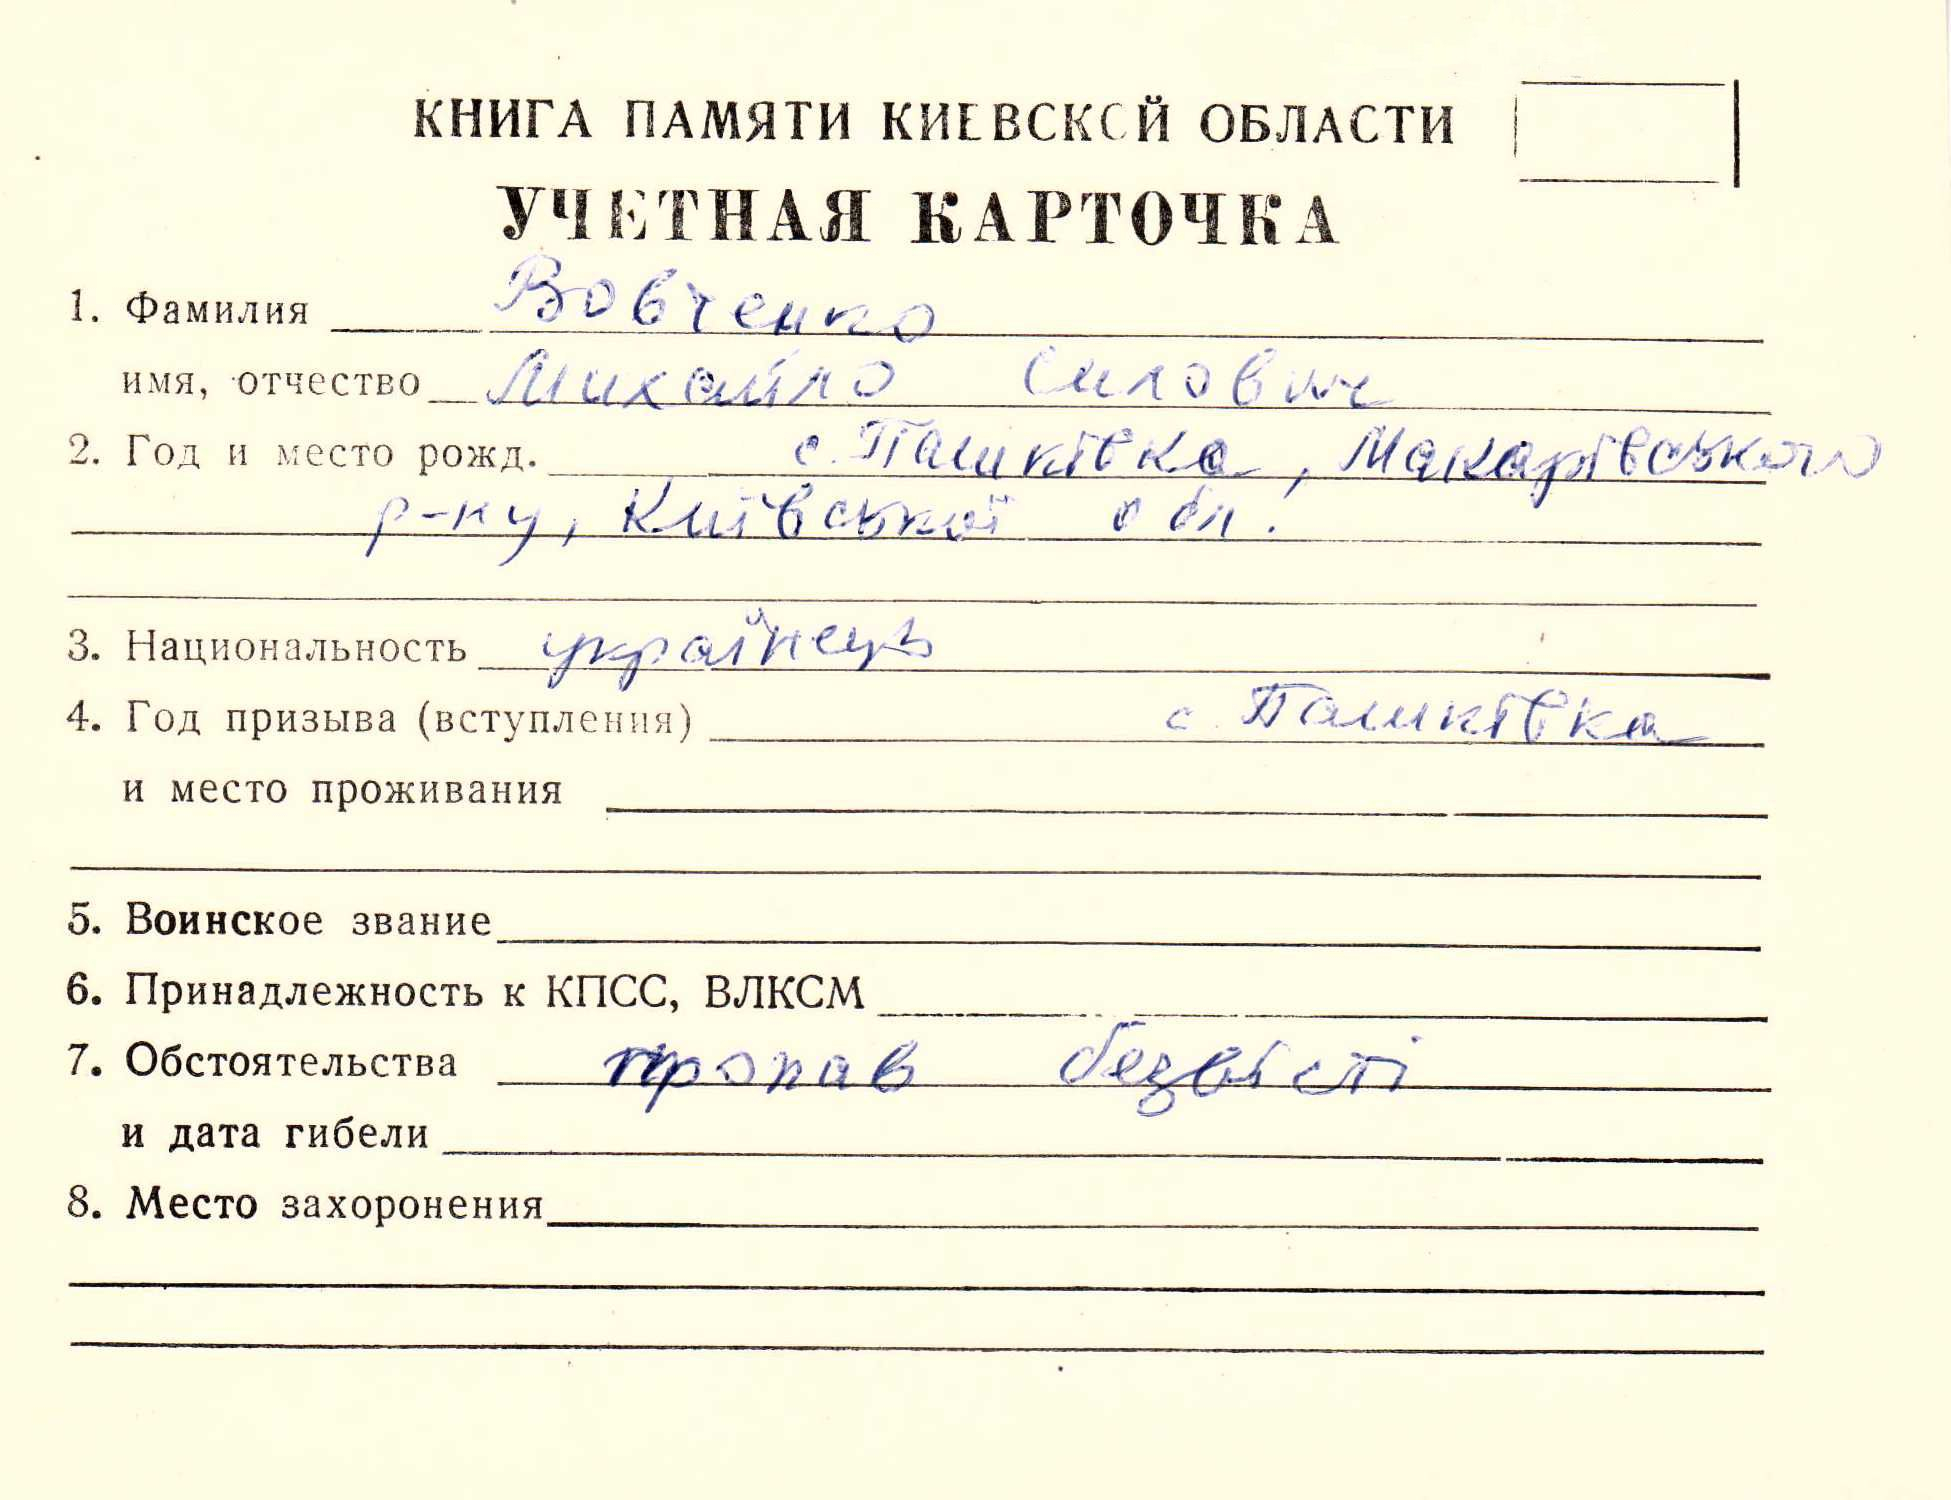 КНИГА ПАМЯТИ КИЕВСКОЙ ОБЛАСТИ
УЧЕТНАЯ КАРТОЧКА
1. Фамилия Вовченко
имя, отчество Михайло Силович
2. Год и место рожд. с. Пашківка, Макарівського
р-ну, Київської обл.
3. Национальность українець
4. Год призыва (вступления) с. Пашківка
и место проживания
5. Воинское звание
6. Принадлежность к КПСС, ВЛКСМ
7. Обстоятельства пропав безвісті
и дата гибели
8. Место захоронения